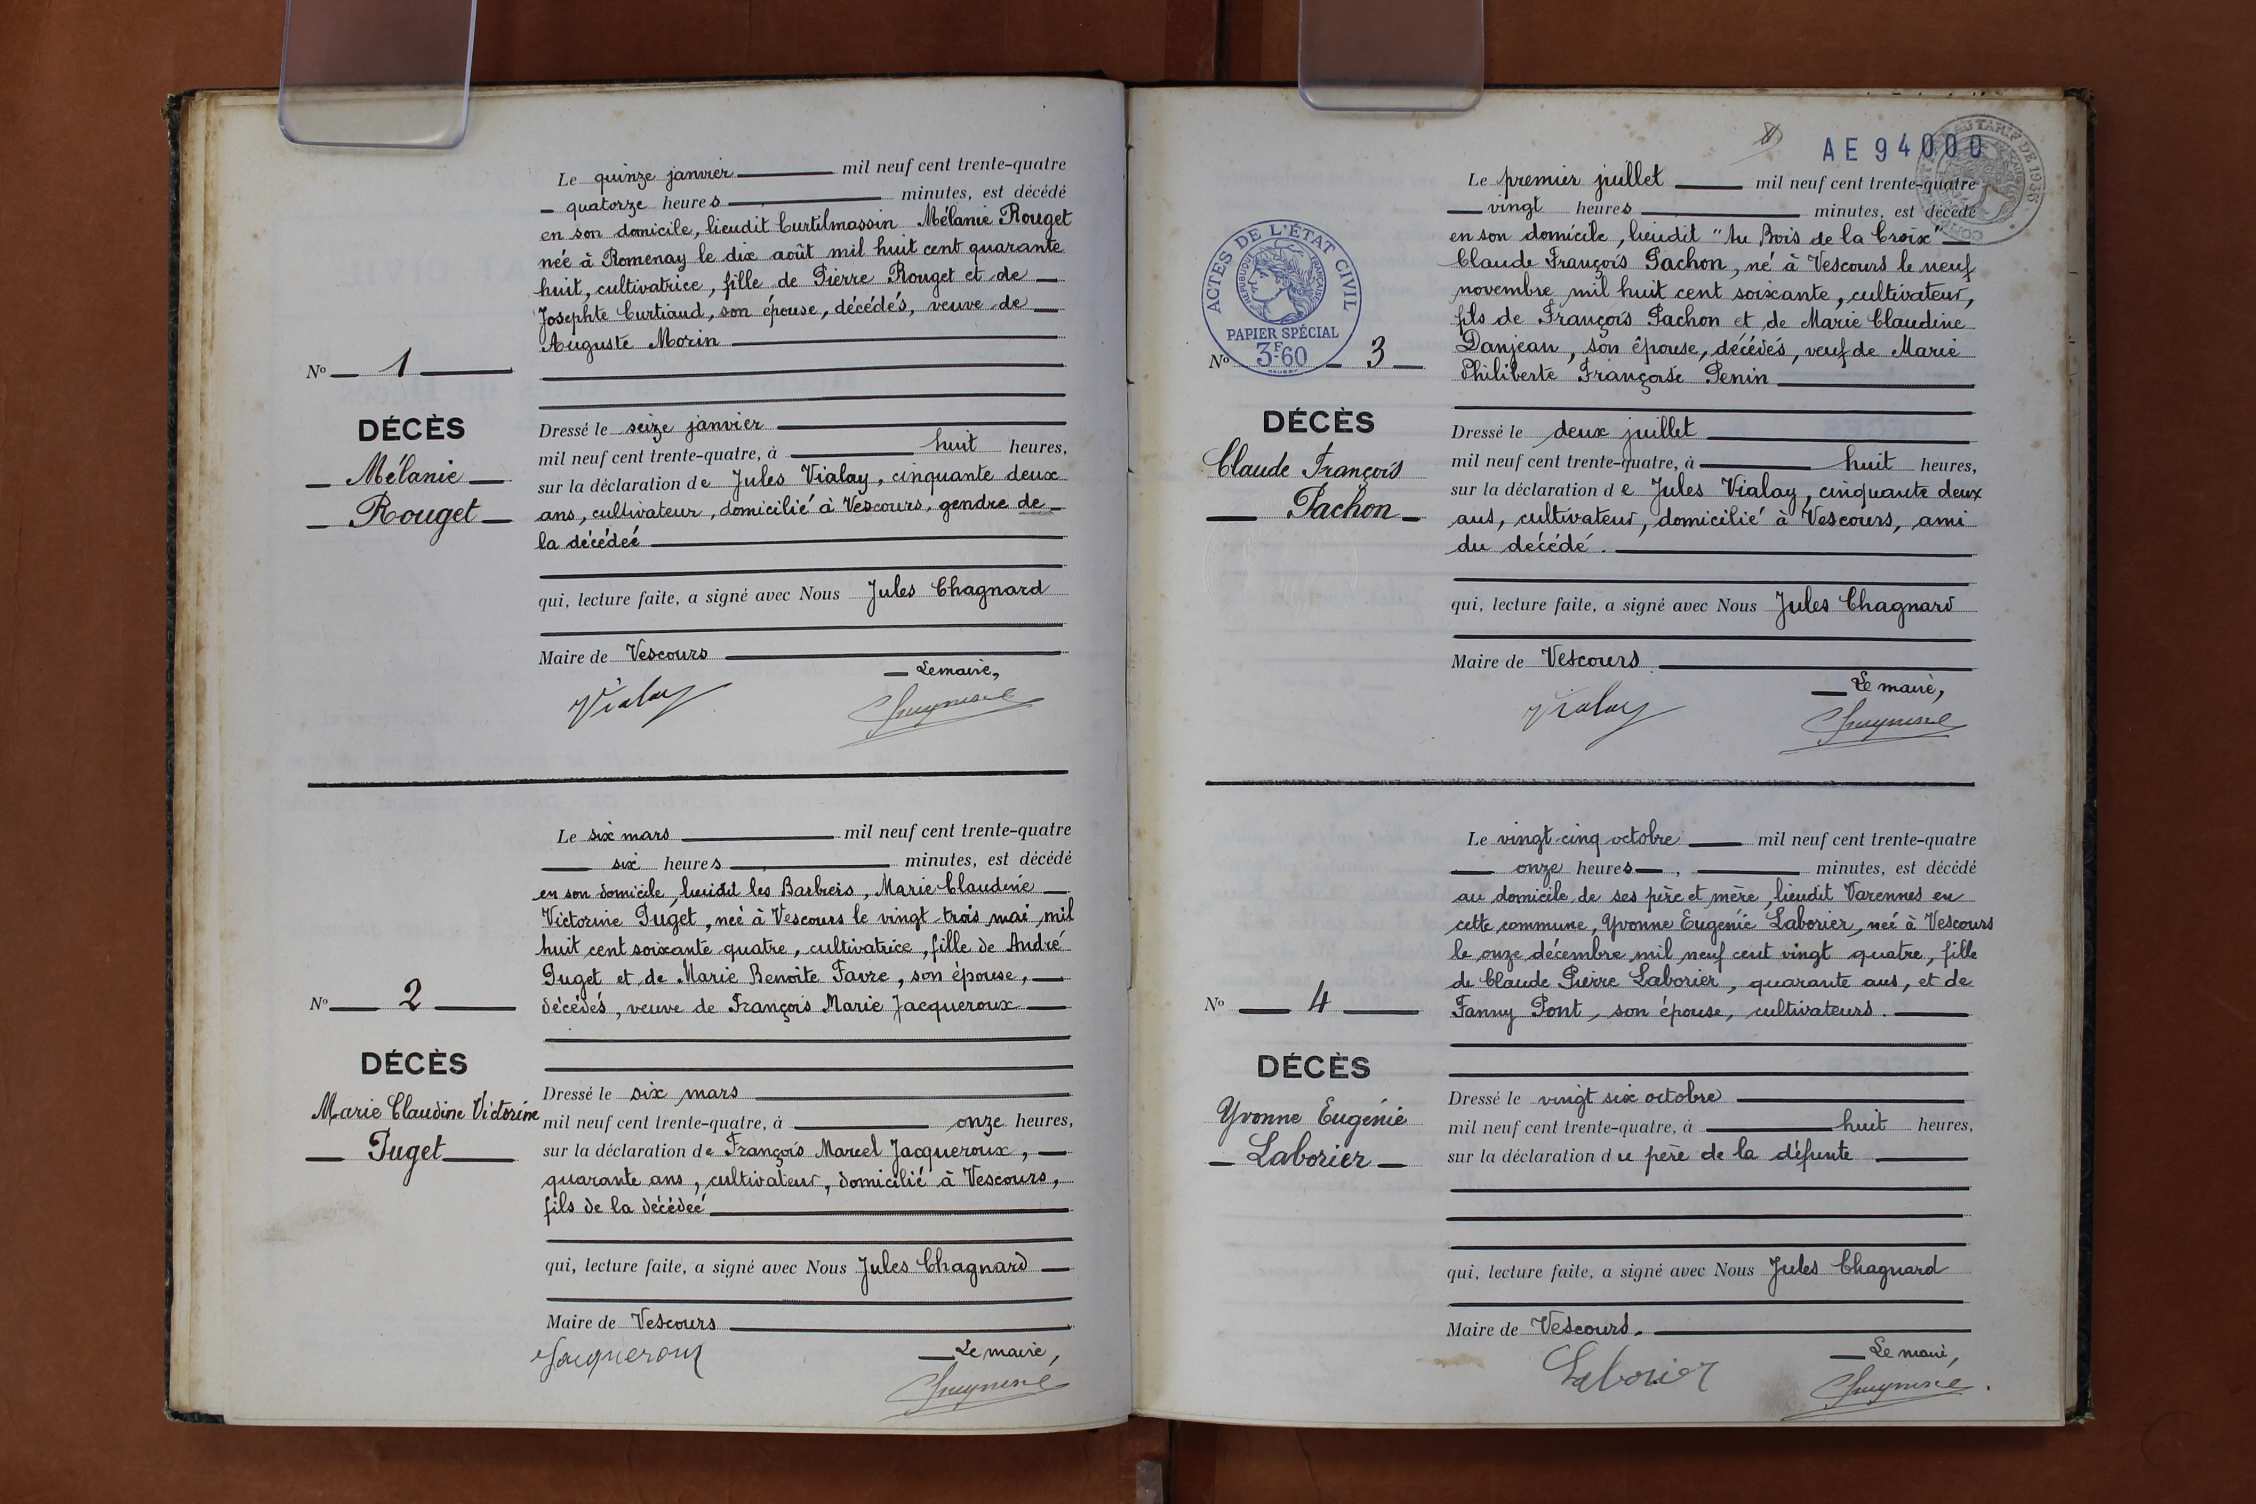 Le quinze janvier mil neuf cent trente-quatre
quatorze heures, minutes, est décédé
en son domicile, lieudit Curtilmassin Mélanie Rouget
née à Romenay le dix août mil huit cent quarante
huit, cultivatrice, fille de Pierre Rouget et de
Josephte Curtiaud, son épouse, décédés, veuve de
Auguste Morin
N° 1
DÉCÈS
Mélanie
Rouget
Dressé le seize janvier
mil neuf cent trente-quatre, à huit heures,
sur la déclaration de Jules Vialay, cinquante deux
ans, cultivateur, domicilié à Vescours, gendre de
la décédeé
qui, lecture faite, a signé avec Nous Jules Chagnard
Maire de Vescours
Le maire,
Vialay
Le six mars mil neuf cent trente-quatre
six heures, minutes, est décédé
en son domicile, lieudit les Barbiers, Marie Claudine
Victorine Puget, neé à Vescours le vingt-trois mai mil
huit cent soixante quatre, cultivatrice, fille de André
Puget et de Marie Benoite Favre, son épouse,
décédés, veuve de François Marie Jacqueroux
N° 2
DÉCÈS
Marie Claudine Victorine
Puget
Dressé le six mars
mil neuf cent trente-quatre, à onze heures,
sur la déclaration de François Marcel Jacqueroux,
quarante ans, cultivateur, domicilié à Vescours,
fils de la décédeé
qui, lecture faite, a signé avec Nous Jules Chagnard
Maire de Vescours
Le maire,
Jacqueroux
AE 94000
AU TARIF DE 1936
ACTES DE L'ÉTAT CIVIL
REPUBLIQUE FRANÇAISE
PAPIER SPÉCIAL
3F60
Le premier juillet mil neuf cent trente-quatre
vingt heures, minutes, est décédé
en son domicile, lieudit "Au Bois de la Croix"
Claude François Pachon, né à Vescours le neuf
novembre mil huit cent soixante, cultivateur,
fils de François Pachon et de Marie Claudine
Danjean, son épouse, décédés, veuf de Marie
Philiberte Françoise Penin
N° 3
DÉCÈS
Claude François
Pachon
Dressé le deux juillet
mil neuf cent trente-quatre, à huit heures,
sur la déclaration de Jules Vialay, cinquante deux
ans, cultivateur, domicilié à Vescours, ami
du decédé.
qui, lecture faite, a signé avec Nous Jules Chagnard
Maire de Vescours
Le maire,
Vialay
Le vingt-cinq octobre mil neuf cent trente-quatre
onze heures, minutes, est décédé
au domicile de ses père et mère, lieudit Varennes en
cette commune, Yvonne Eugénie Laborier, neé à Vescours
le onze décembre mil neuf cent vingt quatre, fille
de Claude Pierre Laborier, quarante ans, et de
Fanny Pont, son épouse, cultivateurs.
N° 4
DÉCÈS
Yvonne Eugénie
Laborier
Dressé le vingt six octobre
mil neuf cent trente-quatre, à huit heures,
sur la déclaration du père de la défunte
qui, lecture faite, a signé avec Nous Jules Chagnard
Maire de Vescours.
Le maire,
Laborier